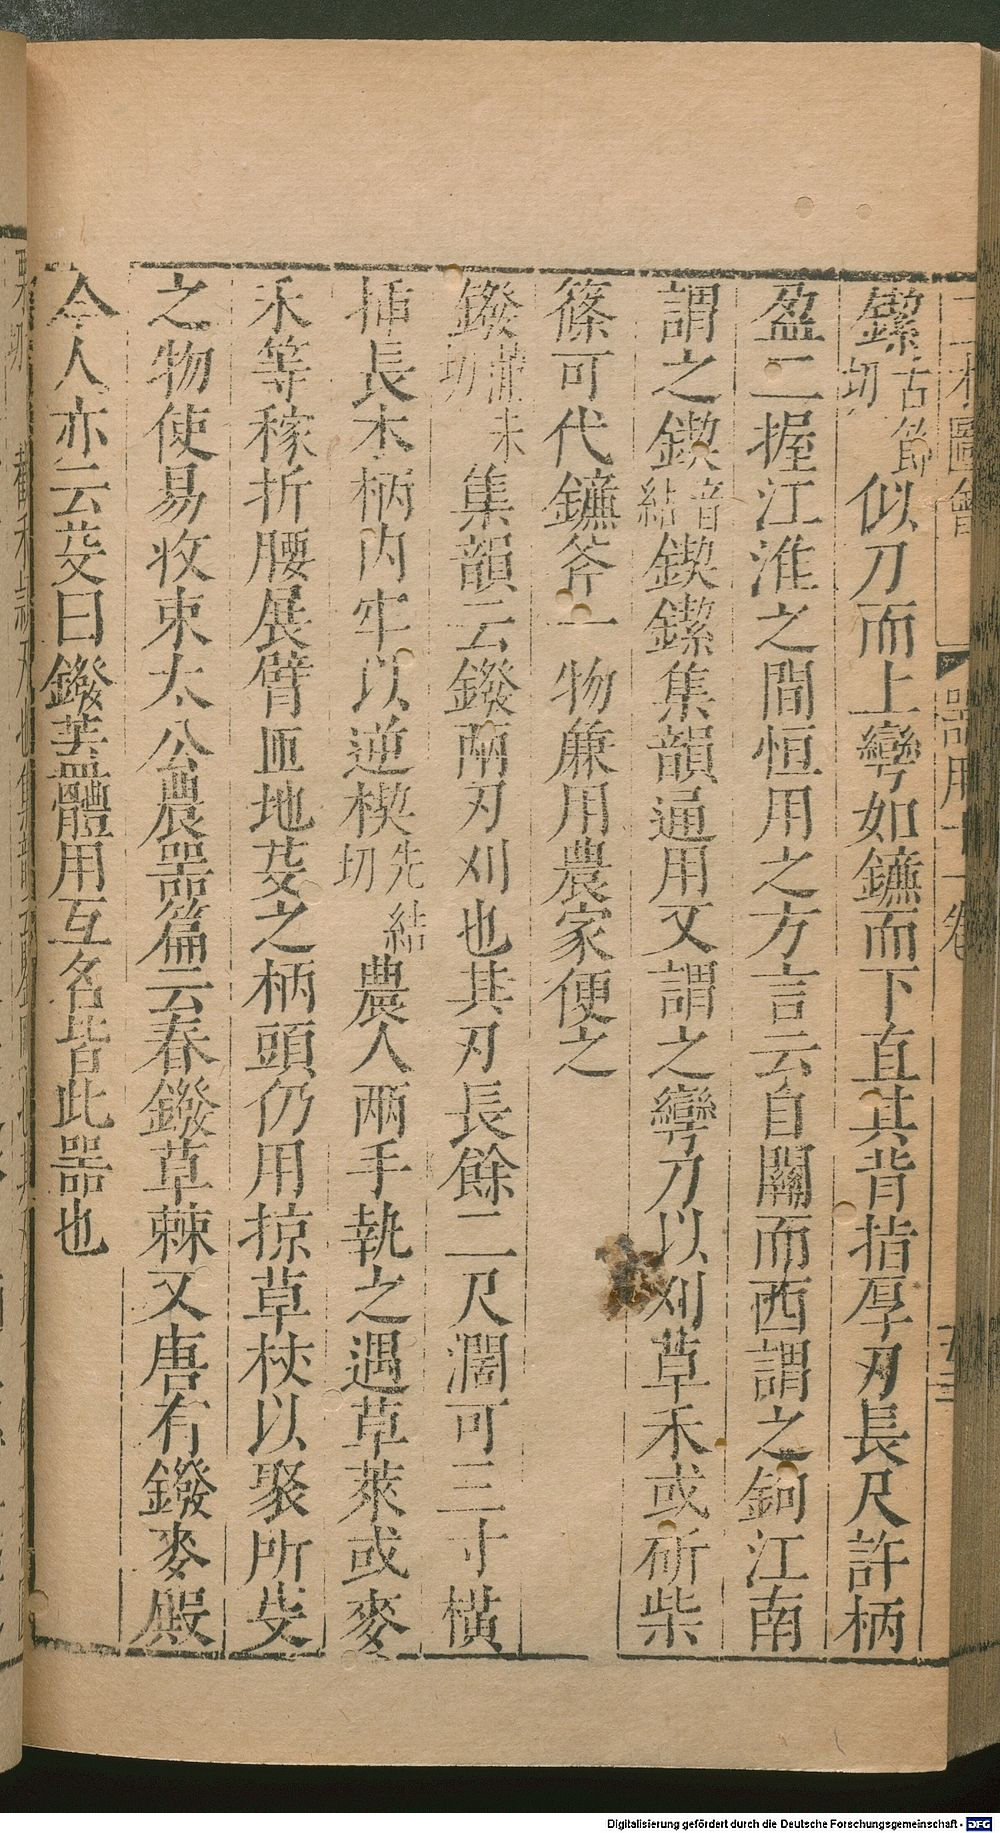 鐹古節切似刀而上彎如鐮而下直其背指厚刃長尺許柄
盈二握江淮之間恒用之方言云自關而西謂之鉤江南
謂之鍥音結鍥鐹集韻通用又謂之彎刀以刈草禾或斫柴
篠可代鐮斧一物兼用農家便之
鏺普末切集韻云鏺兩刃刈也其刃長餘二尺濶可三寸橫
揷長木柄內牢以逆楔先結切農人兩手執之遇草萊或麥
禾等稼折腰展臂匝地芟之柄頭仍用掠草杖以聚所芟
之物使易收束太公農器篇云春鏺草棘又唐有鏺麥殿
今人亦云芟曰鏺葢體用互名皆此器也
圖會 器用十一卷
Digitalisierung gefördert durch die Deutsche Forschungsgemeinschaft - DFG